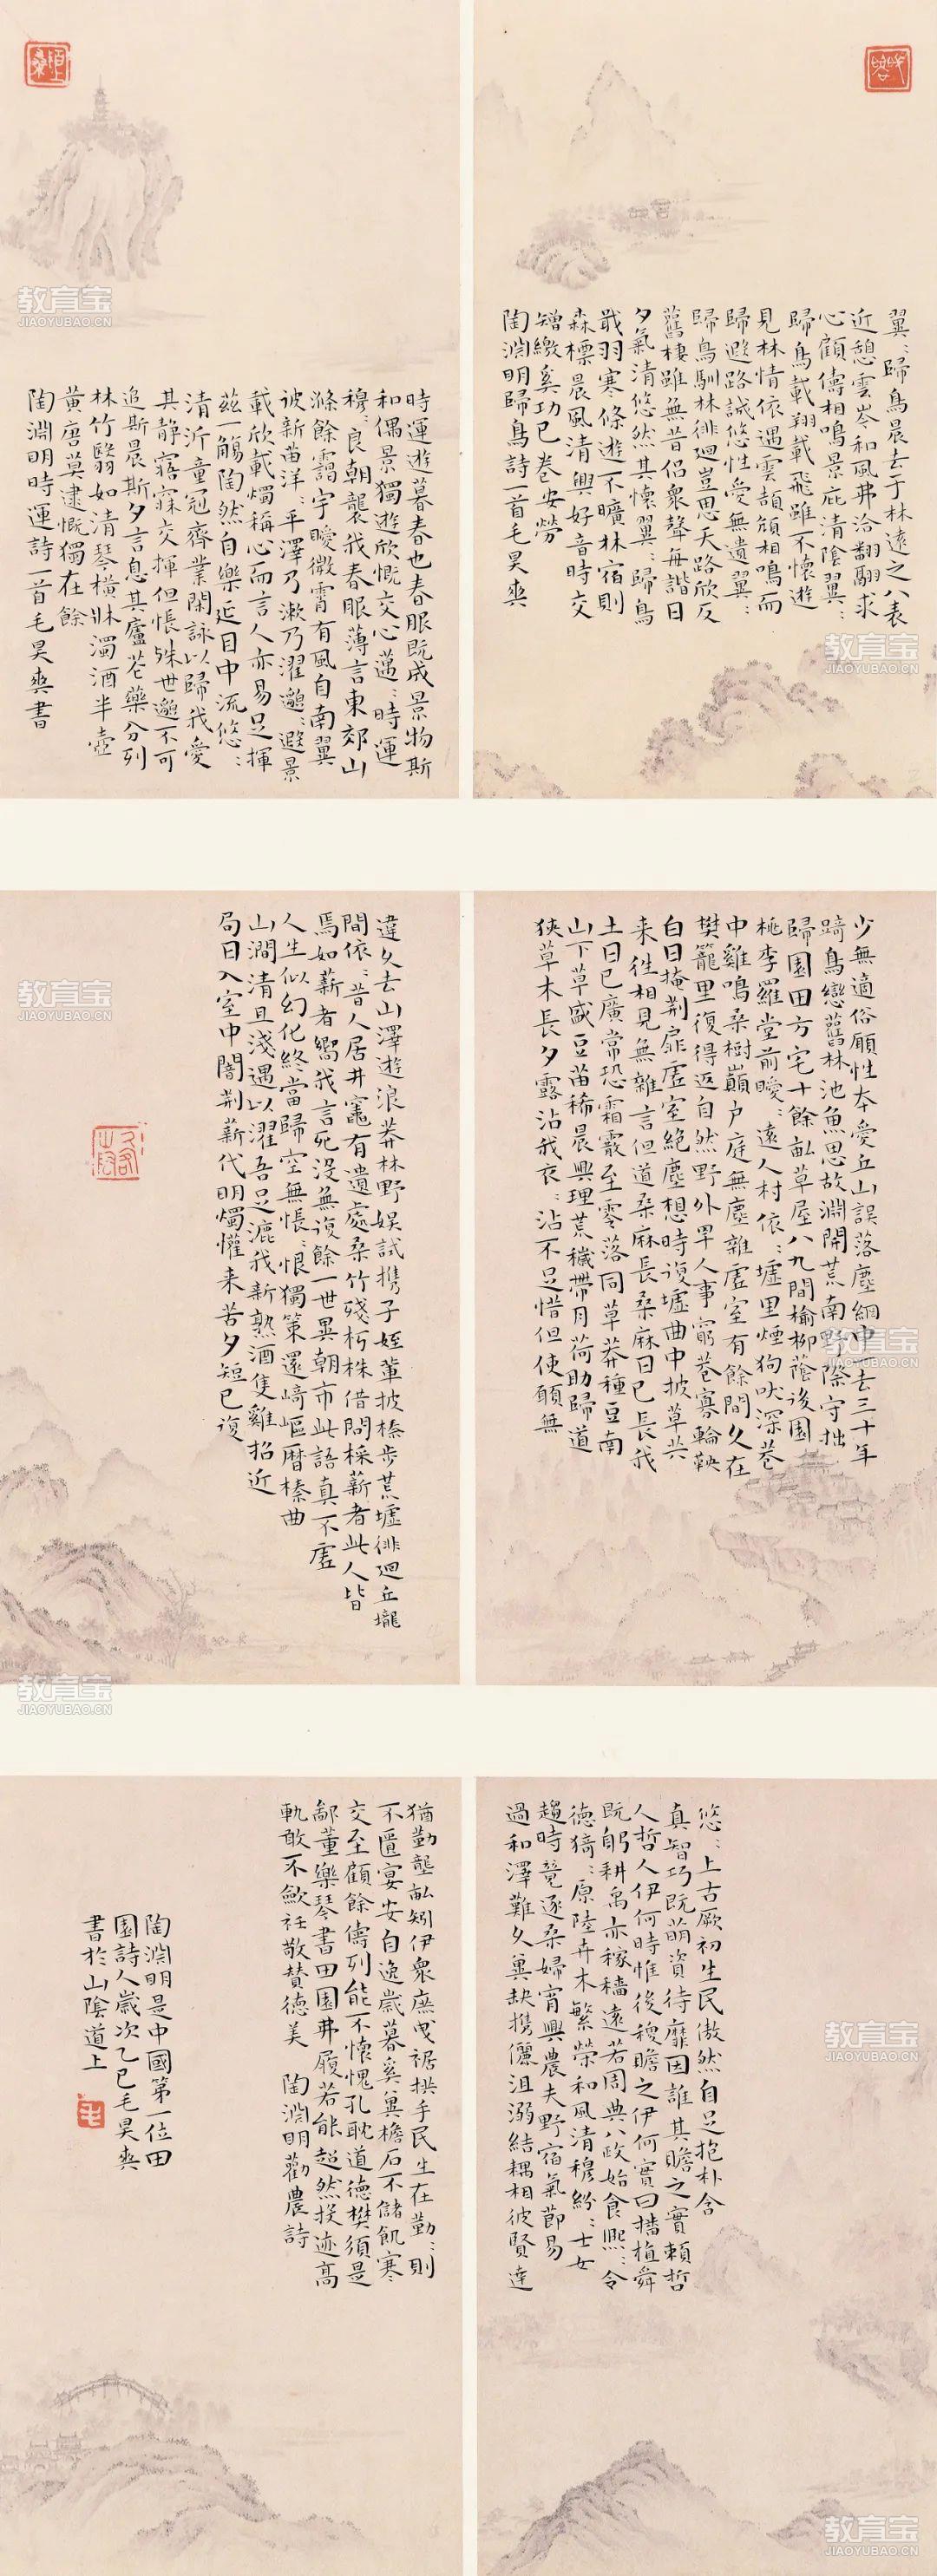 翼〻歸鳥晨去于林遠之八表
近憩雲岑和風弗洽翻翮求
心顧儔相鳴景庇清陰翼〻
歸鳥載翔載飛雖不懷遊
見林情依遇雲頡頏相鳴而
歸遐路誠悠性受無遺翼〻
歸鳥馴林徘廻豈思天路欣反
舊棲雖無昔侶衆聲每諧日
夕氣清悠然其懷翼〻歸鳥
戢羽寒條遊不曠林宿則
森標晨風清興好音時交
矰繳奚功已卷安勞
陶淵明歸鳥詩一首毛昊奭
時運遊暮春也春服既成景物斯
和偶景獨遊欣慨交心邁〻時運
穆〻良朝襲我春服薄言東郊山
滌餘靄宇曖微霄有風自南翼
彼新苗洋〻平澤乃漱乃濯邈〻遐景
載欣載矚稱心而言人亦易足揮
茲一觴陶然自樂延目中流悠〻
清沂童冠齊業閑詠以歸我愛
其靜寤寐交揮但悵殊世邈不可
追斯晨斯夕言息其廬花藥分列
林竹翳如清琴橫牀濁酒半壺
黃唐莫逮慨獨在餘
陶淵明時運詩一首毛昊奭書
少無適俗願性本愛丘山誤落塵網中一去三十年
羈鳥戀舊林池魚思故淵開荒南野際守拙
歸園田方宅十餘畝草屋八九間榆柳蔭後園
桃李羅堂前曖〻遠人村依〻墟里煙狗吠深巷
中雞鳴桑樹巔户庭無塵雜虛室有餘間久在
樊籠里復得返自然野外罕人事窮巷寡輪鞅
白日掩荆扉虛室絕塵想時復墟曲中披草共
来往相見無雜言但道桑麻長桑麻日已長我
土日已廣常恐霜霰至零落同草莽種豆南
山下草盛豆苗稀晨興理荒穢帶月荷助歸道
狹草木長夕露沾我衣〻沾不足惜但使願無
違久去山澤遊浪莽林野娛試携子姪輩披榛步荒墟徘廻丘壠
間依〻昔人居井竈有遺處桑竹殘朽株借問採薪者此人皆
焉如薪者嚮我言死沒無復餘一世異朝市此語真不虛
人生似幻化終當歸空無悵〻恨獨策還崎嶇曆榛曲
山澗清且淺遇以濯吾足漉我新熟酒隻雞招近
局日入室中闇荆薪代明燭懽来苦夕短已復
悠〻上古厥初生民傲然自足抱朴含
真智巧既萌資待靡因誰其贍之實賴哲
人哲人伊何時惟後稷贍之伊何實曰播植舜
既躬耕禹亦稼穡遠若周典八政始食熙〻令
德猗〻原陸卉木繁榮和風清穆紛〻士女
趨時競逐桑婦宵興農夫野宿氣節易
過和澤難久冀缺携儷沮溺結耦相彼賢達
猶勤壟畝矧伊衆庶曳裾拱手民生在勤〻則
不匱宴安自逸歲暮奚冀檐石不儲飢寒
交至顧餘儔列能不懷愧孔耽道德樊須是
鄙董樂琴書田園弗履若能超然投迹高
軌敢不斂衽敬贊德美 陶淵明勸農詩
陶淵明是中國第一位田
園詩人歲次乙巳毛昊奭
書於山陰道上
教育宝
JIAOYUBAO.CN
教育宝
JIAOYUBAO.CN
教育宝
JIAOYUBAO.CN
教育宝
JIAOYUBAO.CN
教育宝
JIAOYUBAO.CN
教育宝
JIAOYUBAO.CN
教育宝
JIAOYUBAO.CN